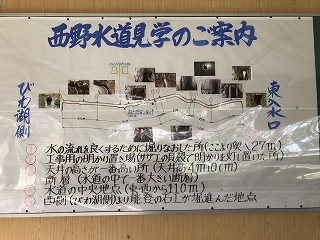 西野水道見学のご案内
びわ湖側
東入水口
水の流れを良くするために堀りなおした所(ここより奥へ27m)
工事用の明かり置き場(サザエの貝殻で明かりを灯し置いた所)
天井の高さが一番高い所(天井高4m0cm)
断層(水道の中で一番大きい断層)
水道の中央地点(東・西から110m)
西側(びわ湖側)より能登の石工が堀進んだ地点